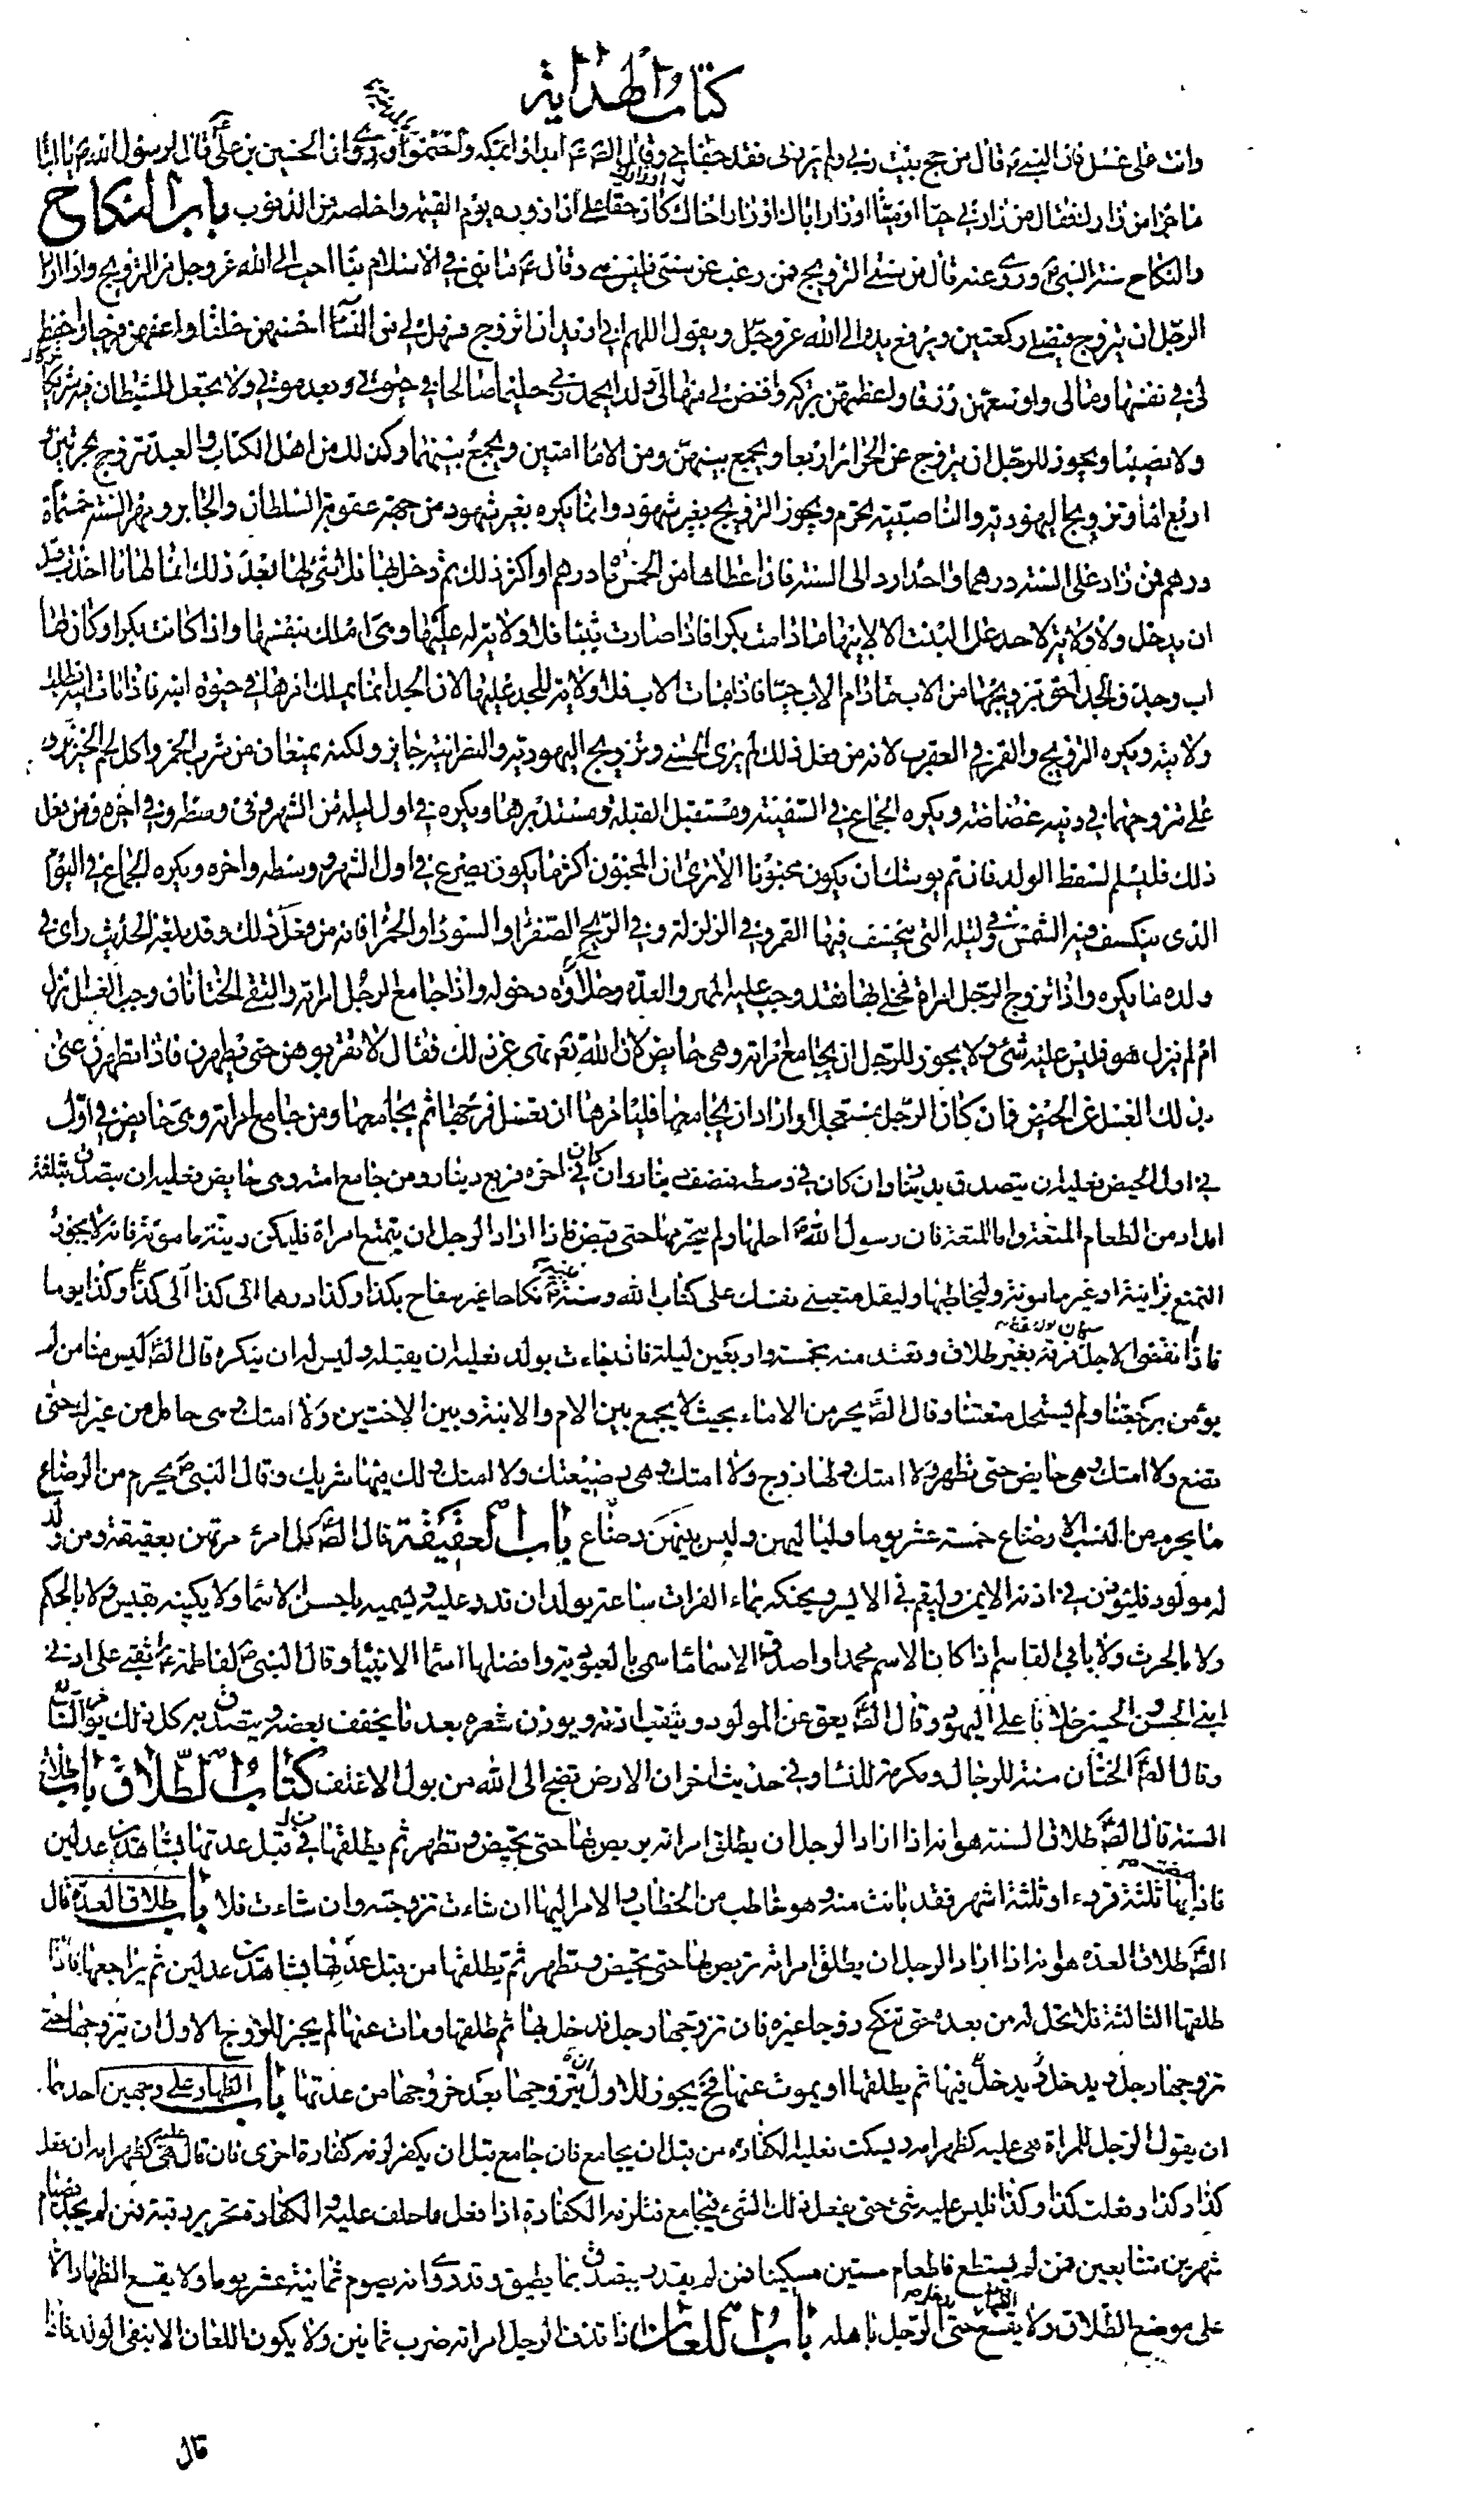 كتاب الهداية
وانت على غسل فان النبي ص قال من حج بيت ربي ولم يزرني فقد جفاني وقال الص ع ابدأوا بمكة واختموا وروي ان الحسين بن علي ع قال لرسول الله ص يا ابتا
ما جزا من زارك فقال من زارني حيا او ميتا او زار اباك او زار اخاك كان حقا علي ان ازوره يوم القيمة واخلصه من الذنوب باب النكاح
والنكاح سنة النبي ص وروي عنه قال من سنتي التزويج فمن رغب عن سنتي فليس مني وقال ع ما بني في الاسلام بناء احب الى الله عز وجل من التزويج واذا اراد
الرجل ان يتزوج فيصلي ركعتين ويرفع يده الى الله عز وجل ويقول اللهم اني اريد ان اتزوج فسهل لي من النساء احسنهن خلقا واعفهن فرجا واحفظهن
لي في نفسها ومالي واوسعهن رزقا واعظمهن بركة واقض لي منها ولدا تجعله لي خلفا صالحا في حيوتي وبعد موتي ولا تجعل للشيطان فيه شركا
ولا نصيبا ويجوز للرجل ان يتزوج من الحرائر اربعا ويجمع بينهن ومن الاماء امتين ويجمع بينهما وكذلك من اهل الكتاب والعبد يتزوج بحرتين او
اربع اماء وتزويج اليهودية والناصبية محرم ويجوز التزويج بغير شهود وانما يكره بغير شهود من جهة عقوبة السلطان والجابر ومهر السنة خمسمأة
درهم فمن زاد على السنة درهما واحدا رد الى السنة فان اعطاها من الخمس مأة درهم او اكثر ذلك ثم دخل بها فلا شئ لها بعد ذلك انما لها ما اخذت قبل
ان يدخل ولا ولاية لاحد على البنت الا لابيها ما دامت بكرا فاذا صارت ثيبا فلا ولاية له عليها وهي املك بنفسها واذا كانت بكرا وكان لها
اب وجد فالجد احق بتزويجها من الاب ما دام الاب حيا فاذا مات الاب فلا ولاية للجد عليها لان الجد انما يملك امرها في حيوة ابنه فاذا مات ابنه بطلت
ولايته ويكره التزويج والقمر في العقرب لانه من فعل ذلك لم ير الحسنى وتزويج اليهودية والنصرانية جايز ولكنه يمنعان من شرب الخمر واكل لحم الخنزير و
على تزوجهما في دينه غضاضة ويكره الجماع في السفينة ومستقبل القبلة ومستدبرها ويكره في اول ليلة من الشهر وفي وسطه وفي اخره ومن فعل
ذلك فليسلم لسقط الولد فان تم يوشك ان يكون مجنونا الا ترى ان المجنون اكثر ما يكون يصرع في اول الشهر ووسطه واخره ويكره الجماع في اليوم
الذي ينكسف فيه الشمس وفي ليلة التي ينخسف فيها القمر وفي الزلزلة وفي الريح الصفراء والسوداء والحمراء فانه من فعل ذلك وقد بلغه الحديث راى في
ولده ما يكره واذا تزوج الرجل امراة فخلى بها فقد وجب عليه المهر والعدة وخلاؤه دخوله واذا جامع الرجل امراته والتقى الختانان وجب الغسل انزل
ام لم ينزل هو فليس عليه شئ ولا يجوز للرجل ان يجامع امراته وهي حايض لان الله تع نهى عن ذلك فقال لا تقربوهن حتى يطهرن فاذا تطهرن عنى
بذلك الغسل عن الحيض فان كان الرجل مستعجلا واراد ان يجامعها فليامرها ان تغسل فرجها ثم يجامعها ومن جامع امراته وهي حايض في اول
في اول الحيض فعليه ان يتصدق بدينار وان كان في وسطه بنصف دينار وان كان في اخره فربع دينار ومن جامع امته وهي حايض فعليه ان يتصدق بثلثة
امداد من الطعام المتعة واما المتعة فان رسول الله ص احلها ولم يحرمها حتى قبض فاذا اراد الرجل ان يتمتع بامراة فليكن دينة مامونة فانه لا يجوز
التمتع بزانية او غير مامونة وليخاطبها وليقل متعيني نفسك على كتاب الله وسنة نبيه ص نكاحا غير سفاح بكذا وكذا درهما الى كذا الى كذا وكذا يوما
فاذا انقضى الاجل فرقة بغير طلاق وتعتد منه بخمسة واربعين ليلة فان جاءت بولد فعليه ان يقبله وليس له ان ينكره قال الص ع ليس منا من لم
يؤمن برجعتنا ولم يستحل متعتنا وقال الص ع يحرم من الاماء بحيث لا يجمع بين الام والابنة وبين الاختين ولا امتك وهي حامل من غيرك حتى
تضع ولا امتك وهي حايض حتى تطهر ولا امتك ولها زوج ولا امتك وهي رضيعتك ولا امتك ولك فيها شريك وقال النبي ص يحرم من الرضاع
ما يحرم من النسب الا رضاع خمسة عشر يوما ولياليهن وليس بينهن رضاع باب العقيقة قال الص ع كل امرئ مرتهن بعقيقة ومن ولد
له مولود فليؤذن في اذنه الايمن وليقم في الايسر ويحنكه بماء الفرات ساعة يولد ان قدر عليه ويسميه باحسن الاسماء ولا يكنيه بعيسى ولا بالحكم
ولا بالحرث ولا بابي القاسم اذا كان الاسم محمدا واصدق الاسماء ما سمى بالعبودية وافضلها اسماء الانبياء وقال النبي ص لفاطمة ع اثقبي على اذني
ابني الحسن والحسين خلافا على اليهود وقال الص ع يعق عن المولود ويثقب اذنه ويوزن شعره بعد ما يخفف بعضه ويتصدق به كل ذلك يوم السابع
وقال الص ع الختان سنة للرجال ومكرمة للنساء وفي حديث اخر ان الارض تضج الى الله من بول الاغلف كتاب الطلاق باب طلاق
السنة قال الص ع طلاق السنة هو انه اذا اراد الرجل ان يطلق امراته يربص بها حتى تحيض وتطهر ثم يطلقها في قبل عدتها بشاهدين عدلين
فاذا مضت بها ثلثة قروء او ثلثة اشهر فقد بانت منه وهو خاطب من الخطاب والامر اليها ان شاءت تزوجته وان شاءت فلا باب طلاق العدة قال
الص ع طلاق العدة هو انه اذا اراد الرجل ان يطلق امراته تربص بها حتى تحيض وتطهر ثم يطلقها من قبل عدتها بشاهدين عدلين ثم يراجعها فاذا
طلقها الثالثة فلا تحل له من بعد حتى تنكح زوجا غيره فان تزوجها رجل فدخل بها ثم طلقها ومات عنها لم يجز للزوج الاول ان يتزوجها حتى
تزوجها رجل ويدخل بها ثم يطلقها او يموت عنها فح يجوز للاول ان يتزوجها بعد خروجها من عدتها باب الظهار على وجهين احدهما
ان يقول الرجل للمراة هي عليه كظهر امه ويسكت فعليه الكفارة من قبل ان يجامع فان جامع قبل ان يكفر لزمه كفارة اخرى فان قال هي عليه كظهر امه ان فعل
كذا وكذا وفعلت كذا وكذا فليس عليه شئ حتى يفعل ذلك الشئ ويجامع فتلزمه الكفارة اذا فعل ما حلف عليه والكفارة تحرير رقبة فمن لم يجد فصيام
شهرين متتابعين فمن لم يستطع فاطعام ستين مسكينا فمن لم يقدر يتصدق بما يطيق وقد روي انه يصوم ثمانية عشر يوما ولا يقع الظهار الا
على موضع الطلاق ولا يقع حتى الرجل باهله باب اللعان اذا قذف الرجل امراته ضرب ثمانين ولا يكون اللعان الا بنفي الولد فاذا
قال